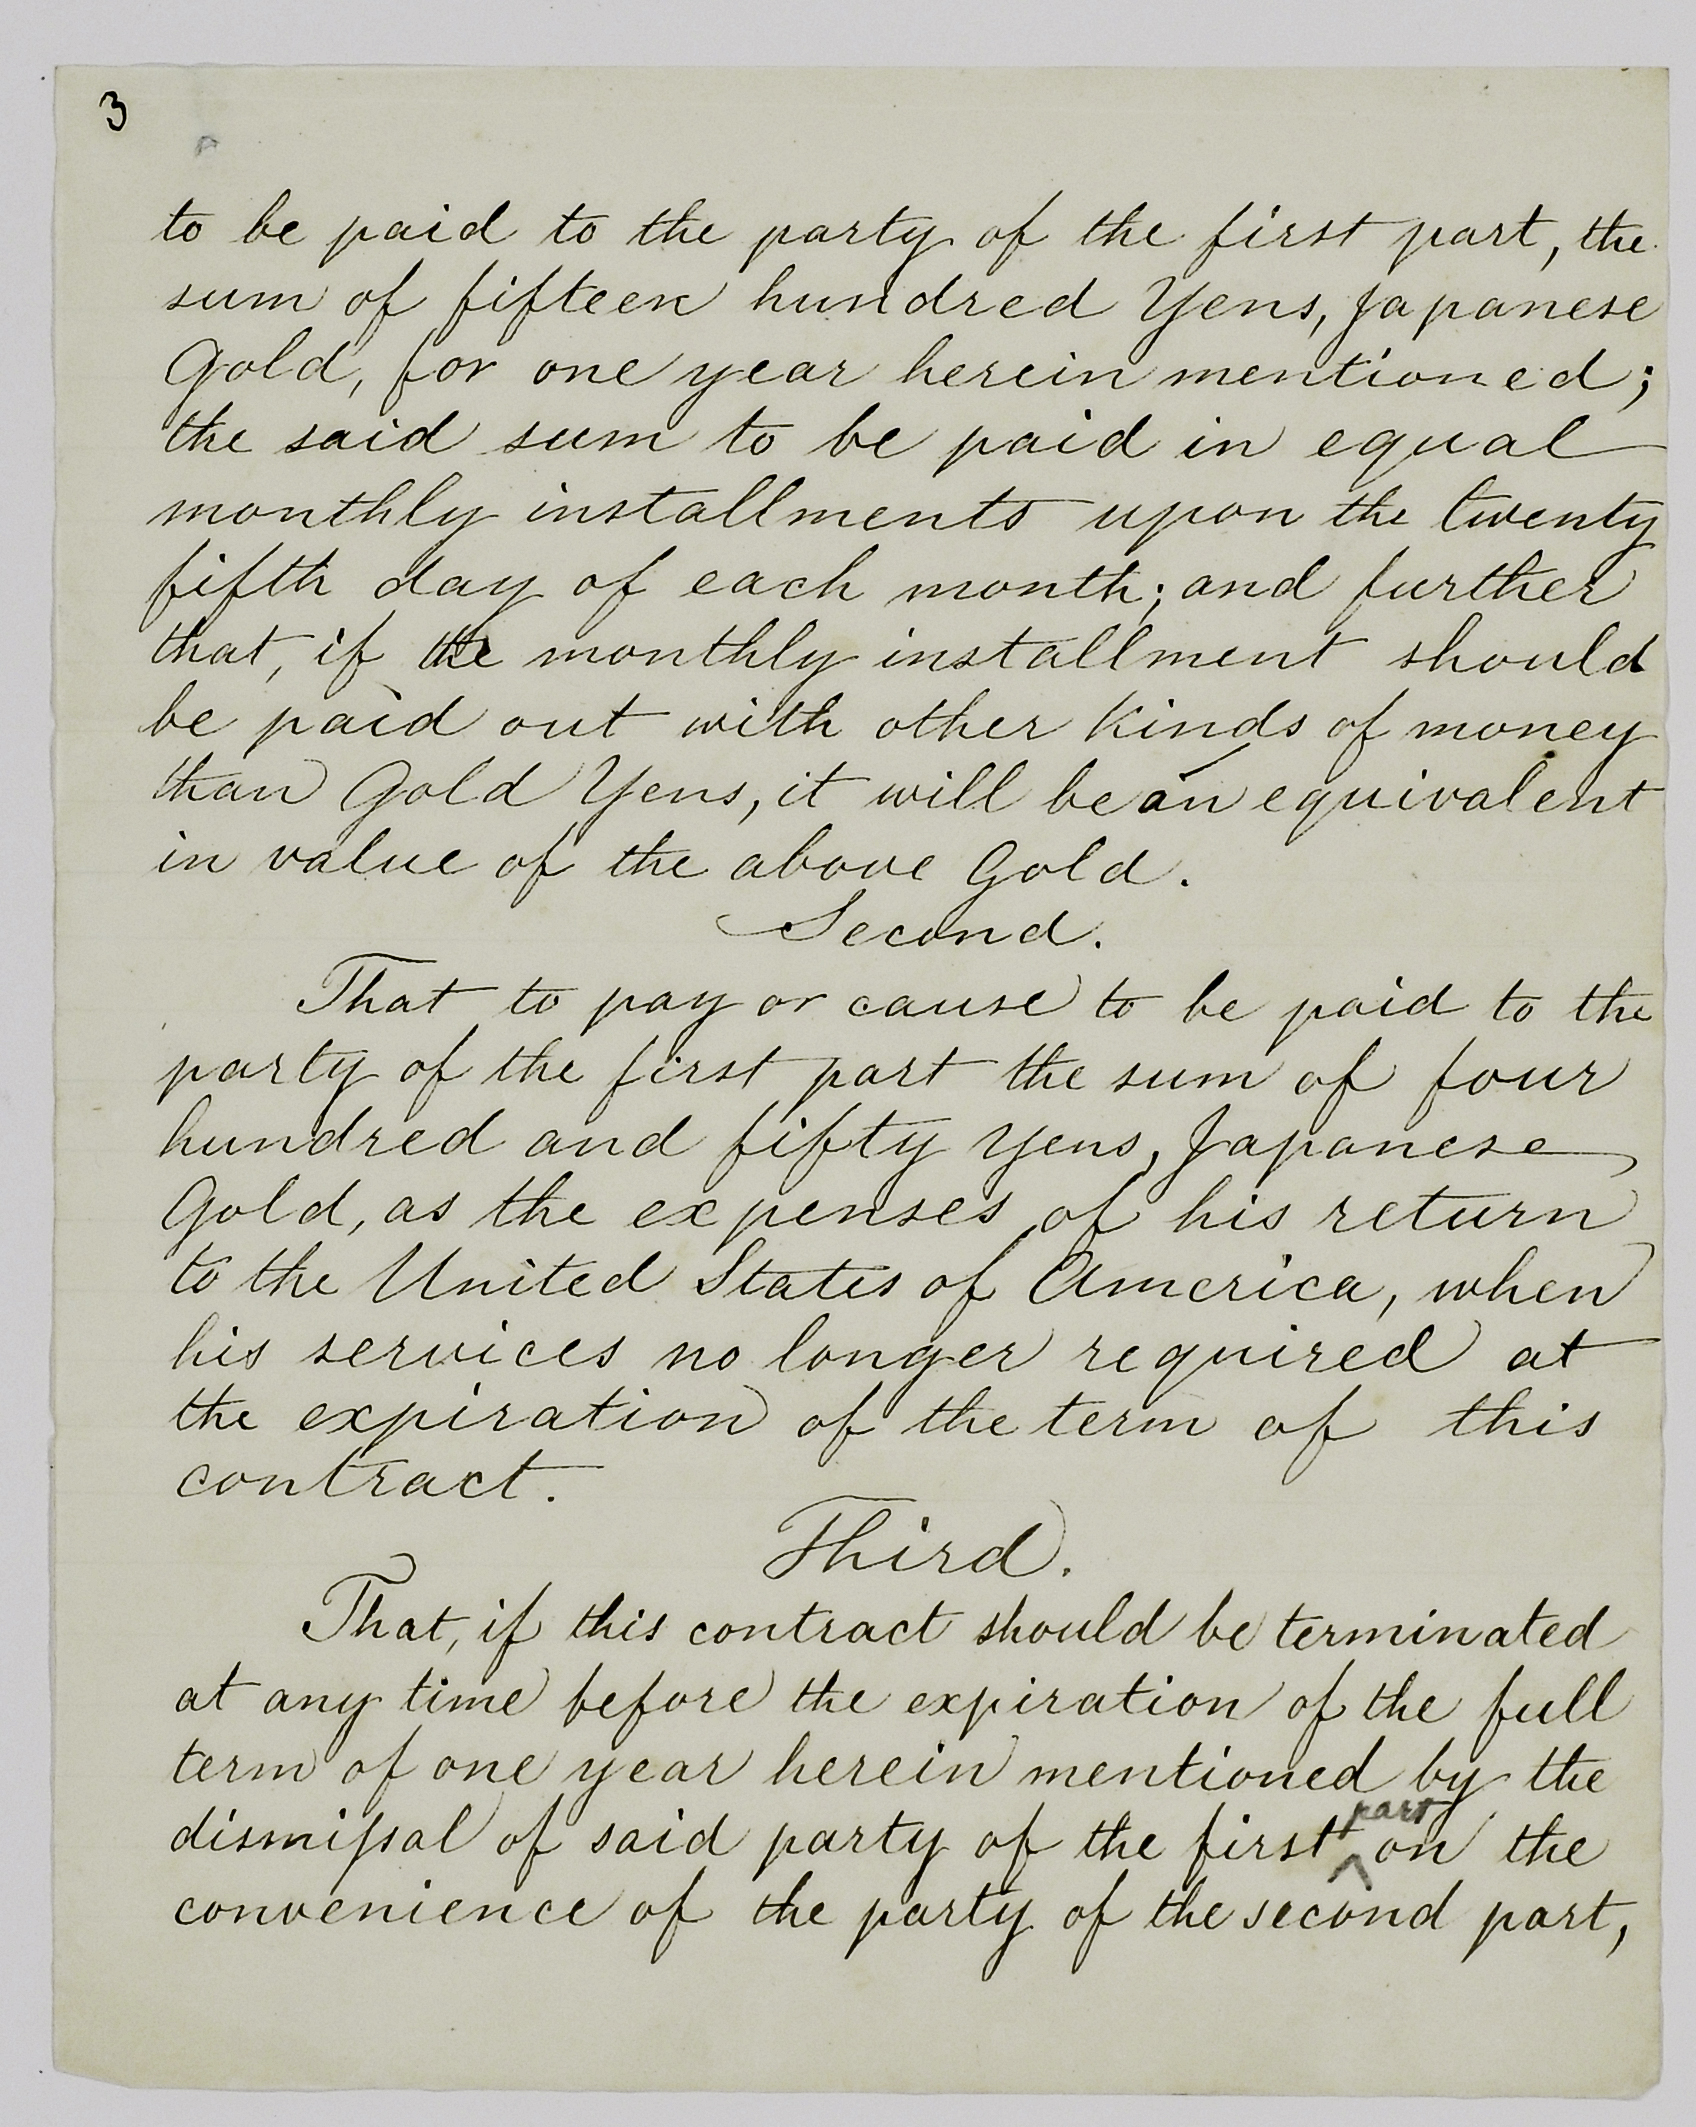 3
to be paid to the party of the first part, the
sum of fifteen hundred Yens, Japanese
Gold, for one year herein mentioned;
the said sum to be paid in equal
monthly installments upon the twenty
fifth day of each month; and further
that, if the monthly installment should
be paid out with other kinds of money
than Gold Yens, it will be an equivalent
in value of the above Gold.
Second.
That to pay or cause to be paid to the
party of the first part the sum of four
hundred and fifty Yens, Japanese
Gold, as the expenses of his return
to the United States of America, when
his services no longer required at
the expiration of the term of this
contract.
Third.
That, if this contract should be terminated
at any time before the expiration of the full
term of one year herein mentioned by the
dismissal of said party of the first part on the
convenience of the party of the second part,